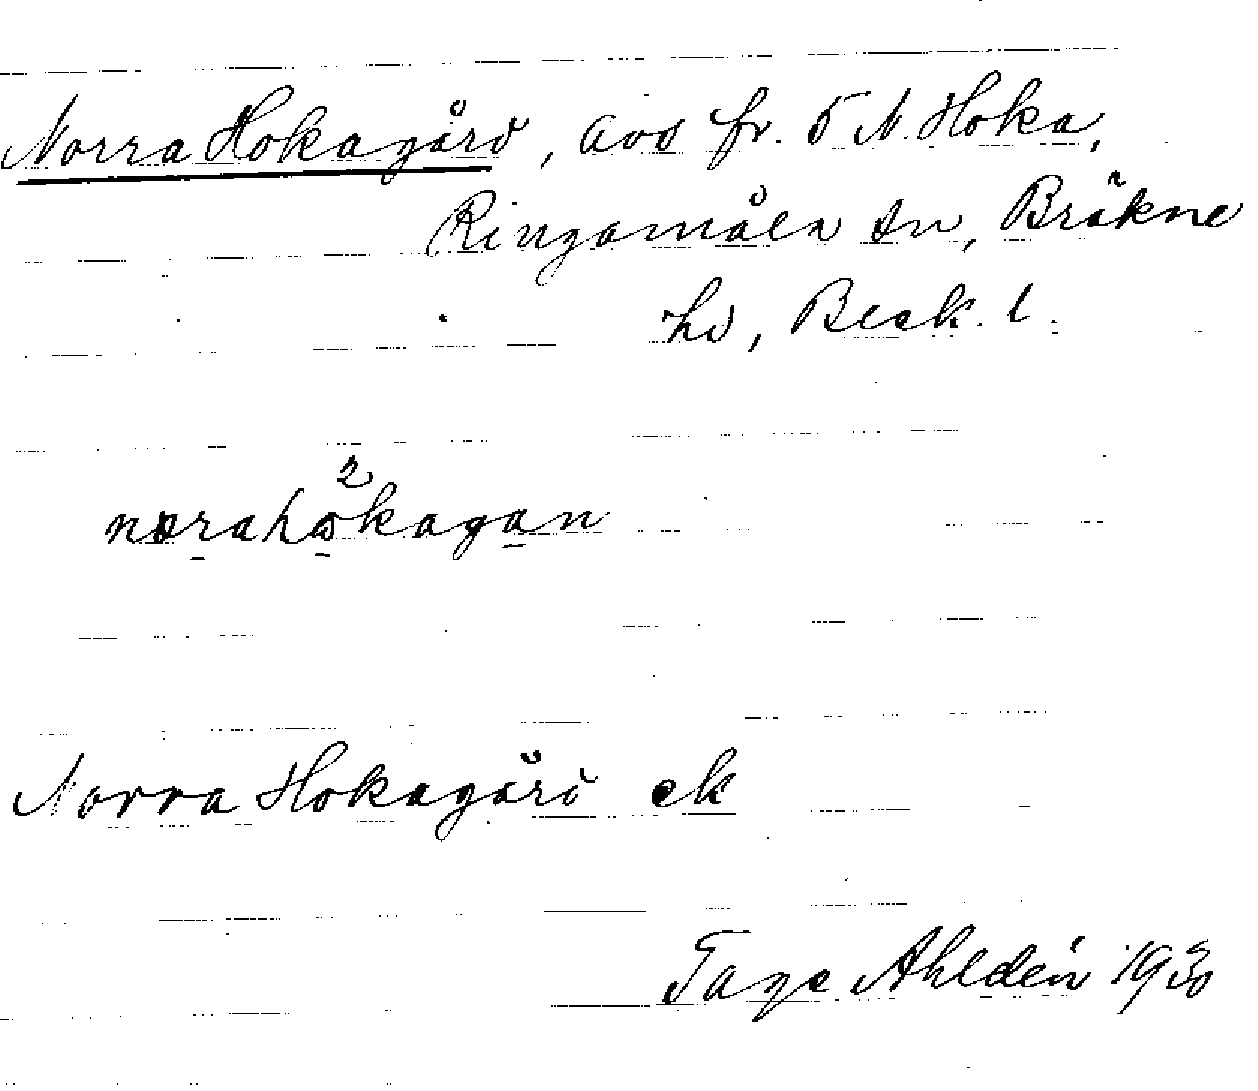 Norra Hokagård, avs fr. 5 N. Hoka,
Ringamåla sn, Bräkne
hd, Blek. l.
norahωkagan
Norra Hokagård ek
Tage Ahldén 1930